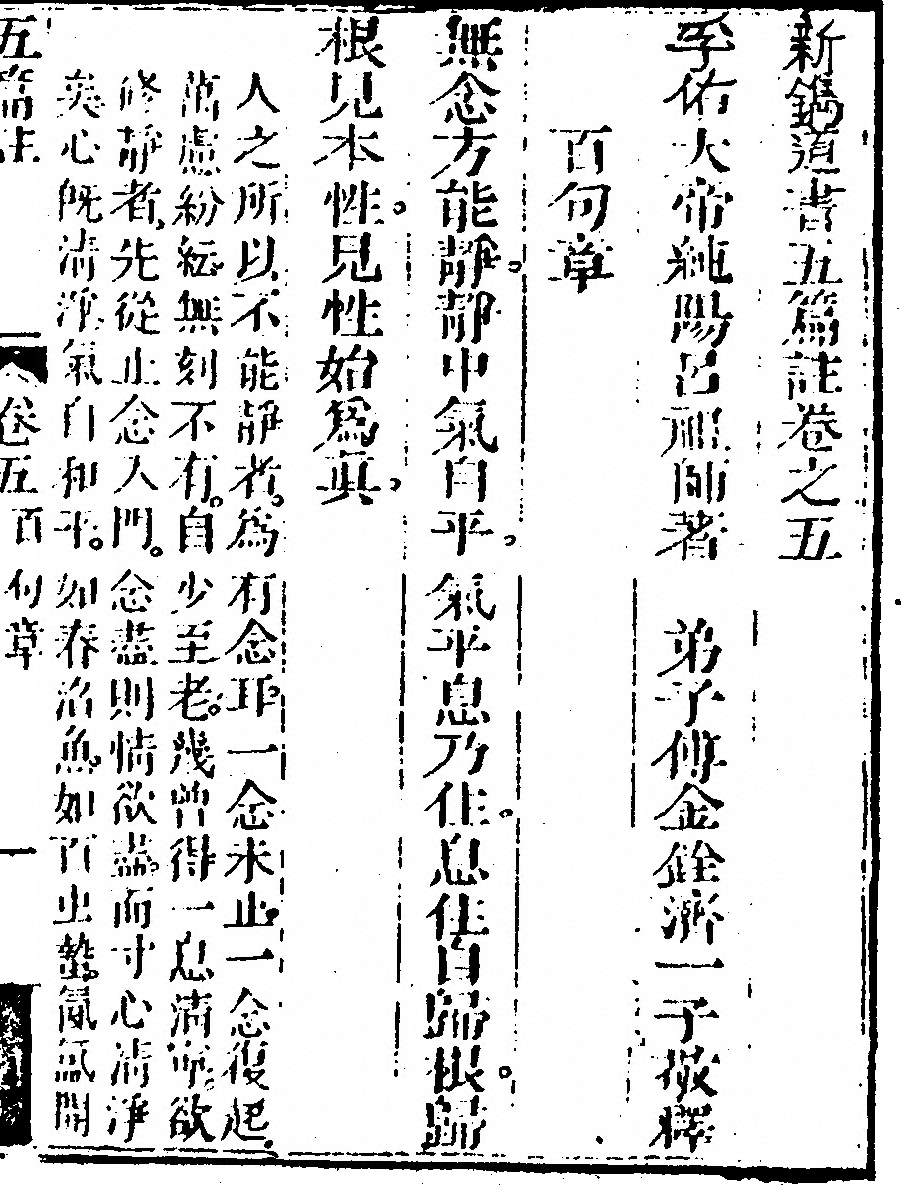 新鐫道書五篇註卷之五
孚佑大帝純陽呂祖師著 弟子傅金銓濟一子敬釋
百句章
無念方能靜。靜中氣自平。氣平息乃住。息住自歸根。歸
根見本性。見性始為真。
人之所以不能靜者。為有念耳。一念未止。一念復起。
萬慮紛紜。無刻不有。自少至老。幾曾得一息清寧。欲
修靜者、先從止念入門。念盡則情欲盡。而寸心清淨
矣。心既清淨。氣自和平。如春沼魚。如百虫蟄。氤氳開
五篇註 卷五 百句章 一